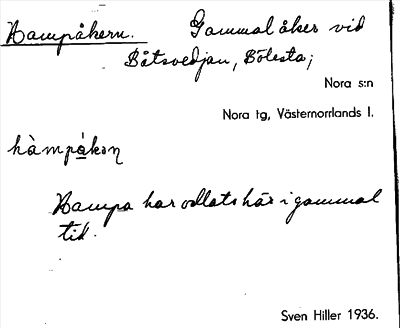 Hampåkern. Gammal åker vid
Båtsvedjan, Bölesta;
Nora s:n
Nora tg, Västernorrlands l.
hàmpåkɘn
Hampa har odlats här i gammal
tid.
Sven Hiller 1936.